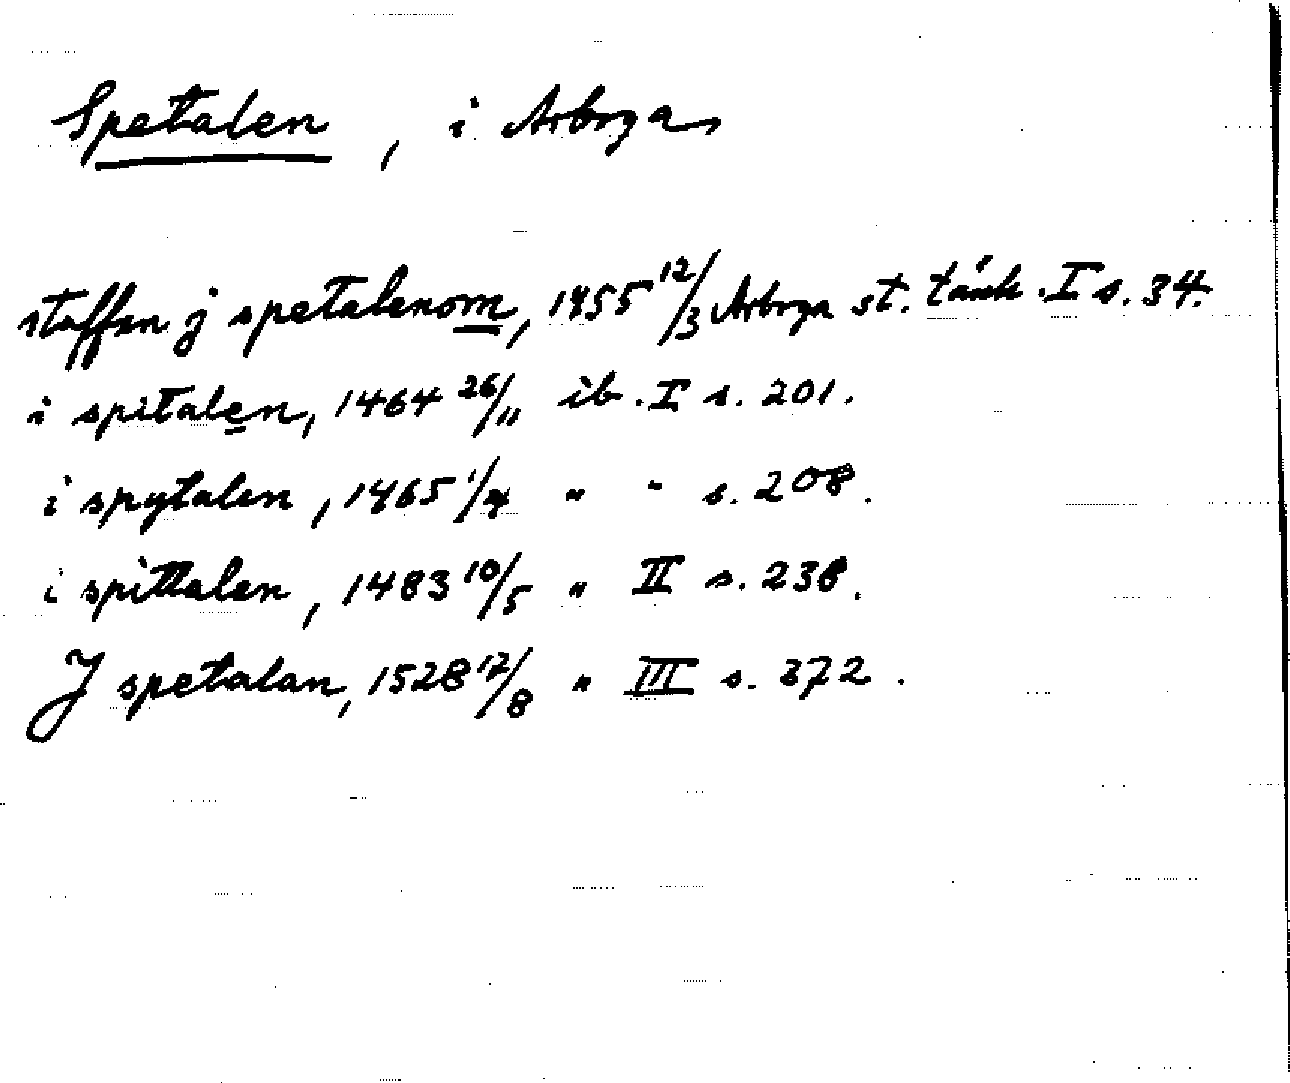 Spetalen, i Arboga
staffan j spetalenom, 1455 12/3 Arboga st. tänk. I s. 34.
i spitalen, 1464 26/11 ib. I s. 201.
i spytalen, 1465 1/4 " " s. 208.
i spittalen, 1483 10/5 " II s. 238.
J spetalan, 1528 17/8 " III s. 372.